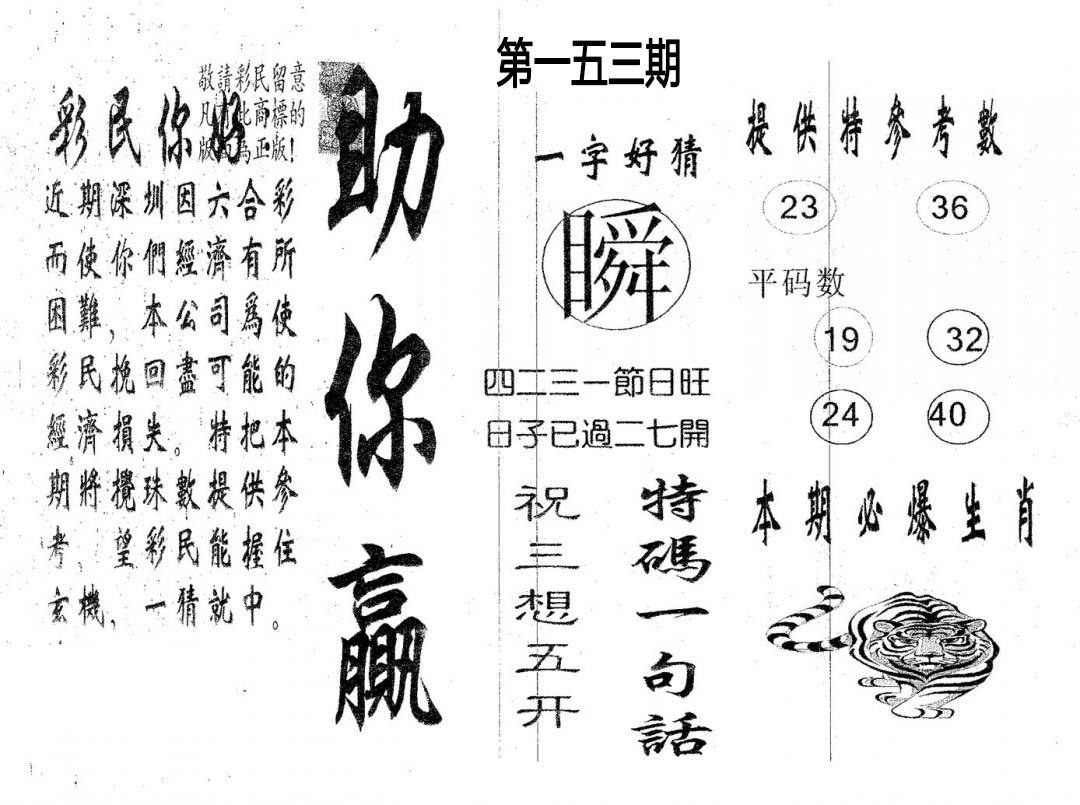 第一五三期
敬請彩民留意
凡 此商標的
版 為正版!
彩民你好
近期深圳因六合彩
而使你們經濟有所
困難,本公司爲使
彩民挽回盡可能的
經濟損失。特把本
期將攪珠數提供參
考,望彩民能握住
玄機,一猜就中。
助你贏
一字好猜
瞬
四二三一節日旺
日子已過二七開
特碼一句話
祝三想五开
提供特參考數
23 36
平码数
19 32
24 40
本期必爆生肖